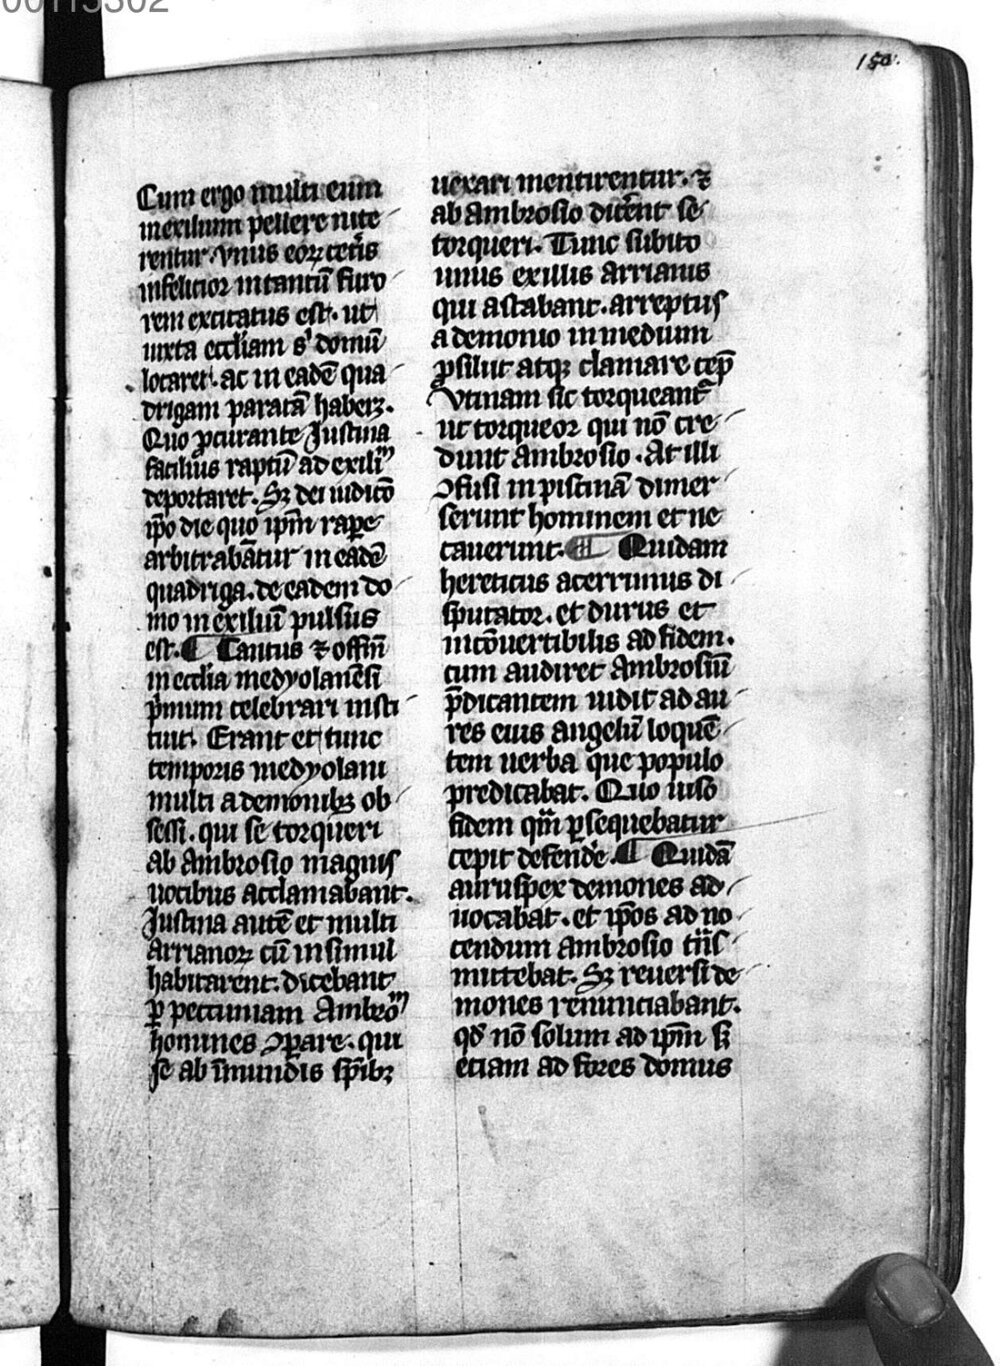 00115302
150.
Cum ergo multi eum
in exilium pellere nite
rentur. vnus eoꝝ cet̃is
infelicior in tantũ furo
rem excitatus est. ut
iuxta eccl̃iam s' domũ
locaret. ac in eadẽ qua
drigam paratã haberꝫ.
Quo ꝓcurante Justina
facilius raptũ ad exiliũ
deportaret. Sꝫ dei iudicõ
ip̃o die quo ip̃m raꝑe
arbitrabãtur in eadẽ
quadriga. de eadem do
mo in exiliũ pulsus
est. ¶ Cantus ⁊ offiñ
in ecclia medyolanẽsi
p̃mum celebrari insti
tuit. Erant et tunc
temporis medyolani
multi a demonibꝫ ob
sessi. qui se torqueri
ab Ambrosio magnis
uocibus acclamabant.
Justina autẽ et multi
arrianoꝝ cũ in simul
habitarent. dicebant
ꝑ peccuniam Ambrõm
homines ꝯꝑare. qui
se ab ĩmundis sp̃ibꝫ
uexari mentirentur. ⁊
ab ambrosio dic̃ent se
torqueri. Tunc subito
unus ex illis arrianis
qui astabant. arreptus
a demonio in medium
ꝓsiluit atqꝫ clamare cep̃
vtinam sic torqueant̃
ut torqueor qui nõ cre
dunt Ambrosio. At illi
ꝯfusi in piscinã dimer
serunt hominem et ne
cauerunt. ¶ Quidam
hereticus acerrimus di
sputator. et durus et
incõuertibilis ad fidem.
cum audiret Ambrosiũ
p̃dicantem uidit ad au
res eius angelũ loquẽ
tem uerba que populo
predicabat. Quo uiso
fidem qũm ꝑsequebatur
cepit defendẽ. ¶ Quidã
auruspex demones ad
uocabat. et ip̃os ad no
cendum Ambrosio t̃nis
mittebat. Sꝫ reuersi de
mones renuntiabant.
qđ nõ solum ad ip̃m sꝫ
etiam ad fores domus